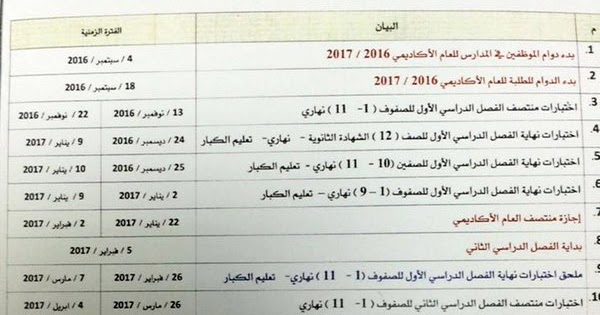 م البيان الفترة الزمنية
1. بدء دوام الموظفين في المدارس للعام الأكاديمي 2016 / 2017 4 / سبتمبر / 2016
2. بدء الدوام للطلبة للعام الأكاديمي 2016 / 2017 18 / سبتمبر / 2016
3. اختبارات منتصف الفصل الدراسي الأول للصفوف ( 1 - 11 ) نهاري 13 / نوفمبر / 2016 22 / نوفمبر / 2016
4. اختبارات نهاية الفصل الدراسي الأول للصف ( 12 ) الشهادة الثانوية - نهاري - تعليم الكبار 24 / ديسمبر / 2016 9 / يناير / 2017
5. اختبارات نهاية الفصل الدراسي الأول للصفين ( 10 - 11 ) نهاري - تعليم الكبار 25 / ديسمبر / 2016 10 / يناير / 2017
6. اختبارات نهاية الفصل الدراسي الأول للصفوف ( 1 - 9 ) نهاري - تعليم الكبار 2 / يناير / 2017 9 / يناير / 2017
7. إجازة منتصف العام الأكاديمي 22 / يناير / 2017 2 / فبراير / 2017
8. بداية الفصل الدراسي الثاني 5 / فبراير / 2017
9. ملحق اختبارات نهاية الفصل الدراسي الأول للصفوف ( 1 - 11 ) نهاري - تعليم الكبار 26 / فبراير / 2017 7 / مارس / 2017
10. اختبارات منتصف الفصل الدراسي الثاني للصفوف ( 1 - 11 ) نهاري 26 / مارس / 2017 4 / ابريل / 2017